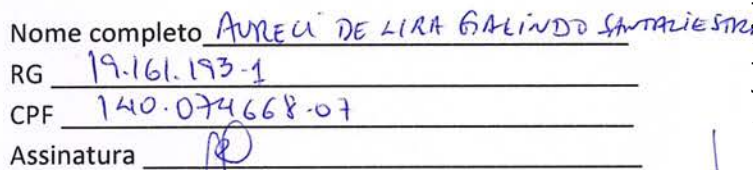 Nome completo AURELI DE LIRA GALINDO
RG 19.161.193-1
CPF 140.074668-07
Assinatura